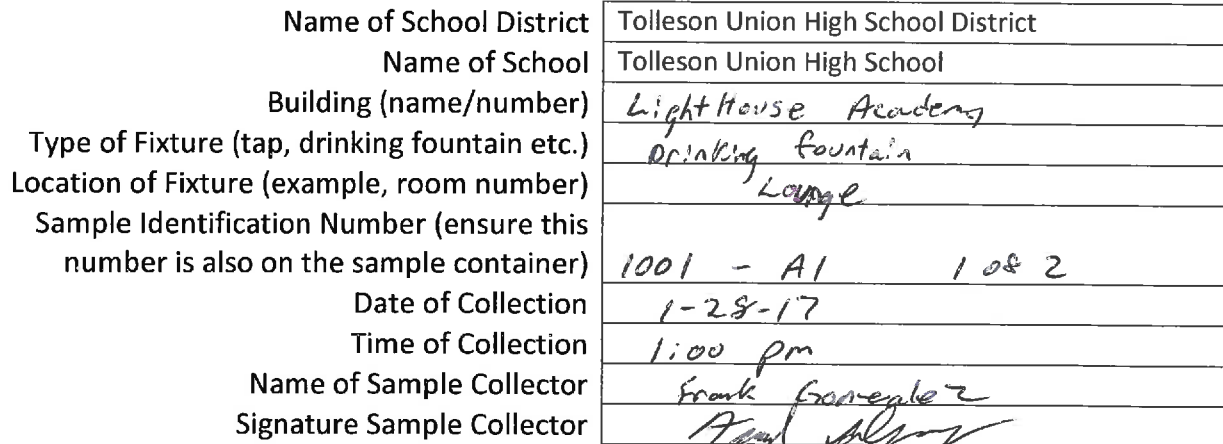 Name of School District Tolleson Union High School District
Name of School Tolleson Union High School
Building (name/number) LightHouse Academy
Type of Fixture (tap, drinking fountain etc.) Drinking fountain
Location of Fixture (example, room number) Lounge
Sample Identification Number (ensure this
number is also on the sample container) 1001 - A1 1 of 2
Date of Collection 1-28-17
Time of Collection 1:00 pm
Name of Sample Collector Frank Gonzalez
Signature Sample Collector